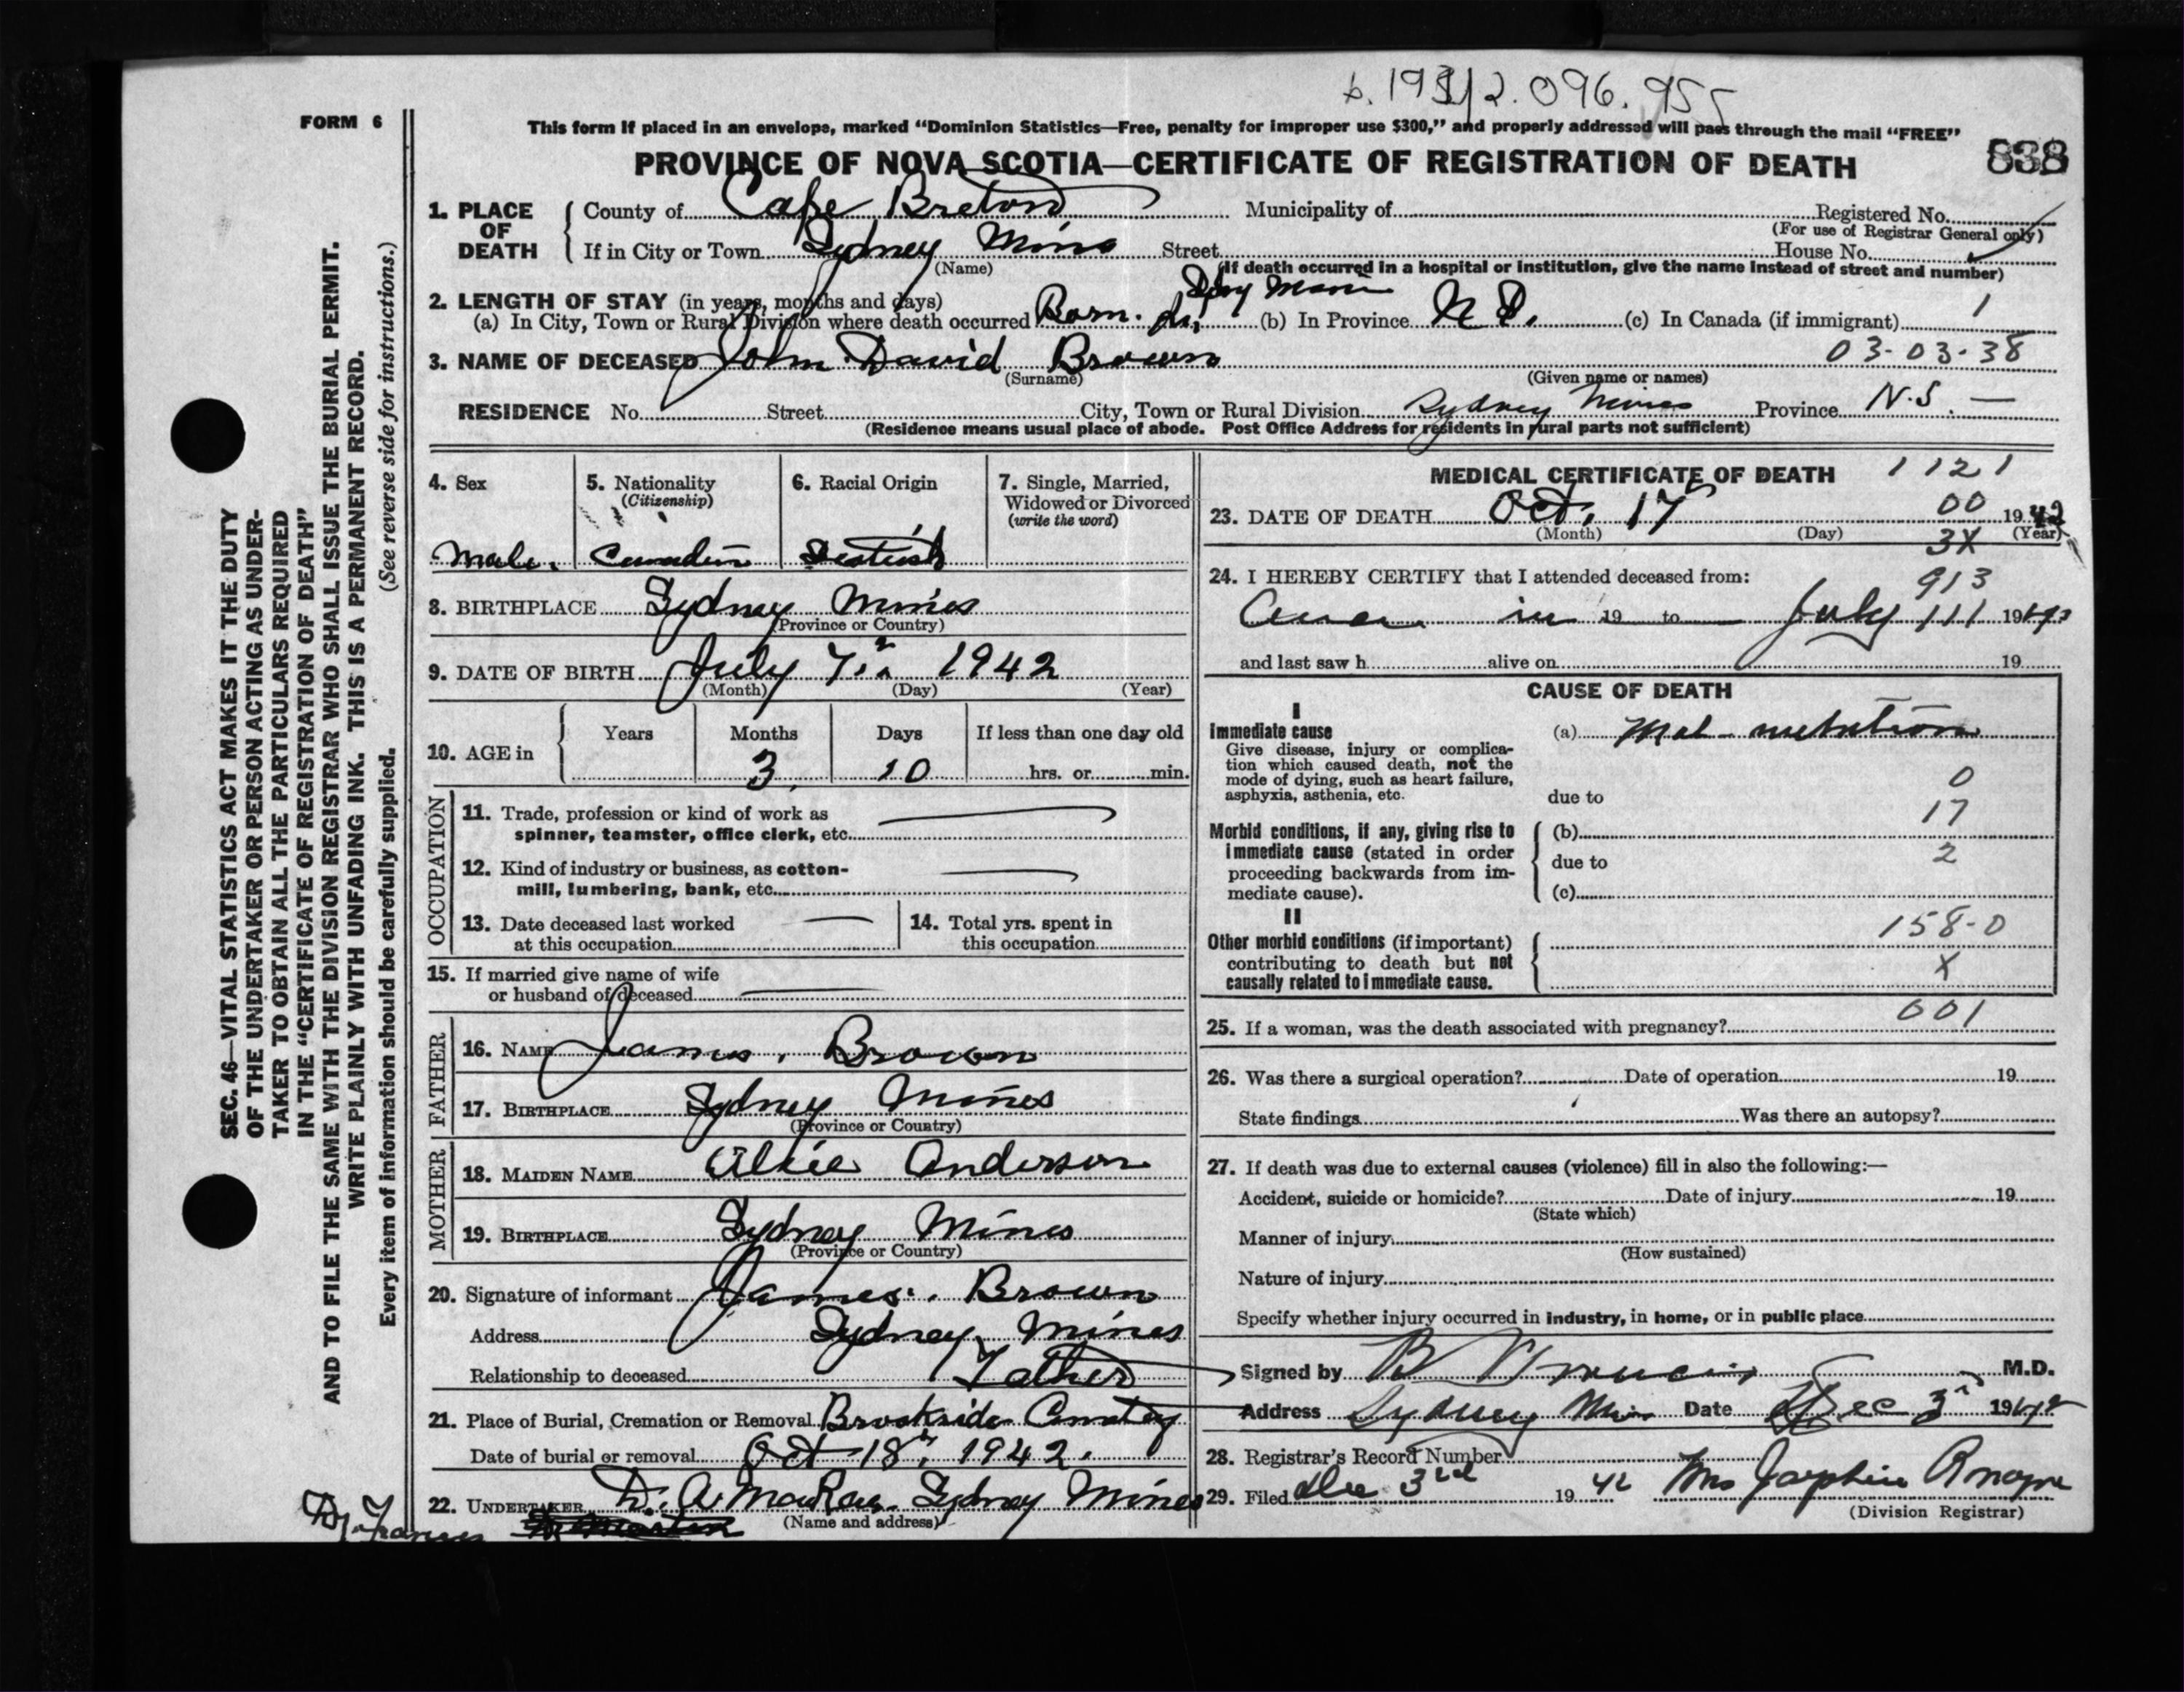 b. 1942.096.955
FORM 6
This form if placed in an envelope, marked "Dominion Statistics—Free, penalty for improper use $300," and properly addressed will pass through the mail "FREE"
PROVINCE OF NOVA SCOTIA—CERTIFICATE OF REGISTRATION OF DEATH
838
SEC. 46—VITAL STATISTICS ACT MAKES IT THE DUTY
OF THE UNDERTAKER OR PERSON ACTING AS UNDER-
TAKER TO OBTAIN ALL THE PARTICULARS REQUIRED
IN THE "CERTIFICATE OF REGISTRATION OF DEATH"
AND TO FILE THE SAME WITH THE DIVISION REGISTRAR WHO SHALL ISSUE THE BURIAL PERMIT.
WRITE PLAINLY WITH UNFADING INK. THIS IS A PERMANENT RECORD.
Every item of information should be carefully supplied. (See reverse side for instructions.)
1. PLACE OF DEATH
County of Cape Breton Municipality of Registered No.
(For use of Registrar General only)
If in City or Town Sydney Mines Street House No.
(Name) (If death occurred in a hospital or institution, give the name instead of street and number)
2. LENGTH OF STAY (in years, months and days)
(a) In City, Town or Rural Division where death occurred Born. (b) In Province N S. (c) In Canada (if immigrant) 1
3. NAME OF DECEASED John David Brown 03-03-38
(Surname) (Given name or names)
RESIDENCE No. Street City, Town or Rural Division Sydney Mines Province N.S. —
(Residence means usual place of abode. Post Office Address for residents in rural parts not sufficient)
4. Sex
Male.
5. Nationality
(Citizenship)
Canadian
6. Racial Origin
Scotish
7. Single, Married,
Widowed or Divorced
(write the word)
8. BIRTHPLACE Sydney Mines
(Province or Country)
9. DATE OF BIRTH July 7th 1942
(Month) (Day) (Year)
10. AGE in
Years Months Days If less than one day old
3 10 hrs. or min.
OCCUPATION
11. Trade, profession or kind of work as
spinner, teamster, office clerk, etc.
12. Kind of industry or business, as cotton-
mill, lumbering, bank, etc.
13. Date deceased last worked
at this occupation
14. Total yrs. spent in
this occupation
15. If married give name of wife
or husband of deceased
FATHER
16. NAME James. Brown
17. BIRTHPLACE Sydney Mines
(Province or Country)
MOTHER
18. MAIDEN NAME Anderson
19. BIRTHPLACE Sydney Mines
(Province or Country)
20. Signature of informant James. Brown
Address Sydney Mines
Relationship to deceased Father
21. Place of Burial, Cremation or Removal Brookside Cemetery
Date of burial or removal Oct 18th, 1942.
22. UNDERTAKER D. A MacRae. Sydney Mines
(Name and address)
Dr. Francis
MEDICAL CERTIFICATE OF DEATH 1121
00
23. DATE OF DEATH Oct. 17 1942
(Month) (Day) (Year)
3X
24. I HEREBY CERTIFY that I attended deceased from:
913
in 19 to July 111 1942
and last saw h alive on 19
CAUSE OF DEATH
I
Immediate cause
Give disease, injury or complica-
tion which caused death, not the
mode of dying, such as heart failure,
asphyxia, asthenia, etc.
(a) Mal-nutrition
0
due to
17
Morbid conditions, if any, giving rise to
immediate cause (stated in order
proceeding backwards from im-
mediate cause).
(b)
2
due to
(c)
II
Other morbid conditions (if important)
contributing to death but not
causally related to immediate cause.
158-0
X
001
25. If a woman, was the death associated with pregnancy?
26. Was there a surgical operation? Date of operation 19
State findings Was there an autopsy?
27. If death was due to external causes (violence) fill in also the following:—
Accident, suicide or homicide? Date of injury 19
(State which)
Manner of injury
(How sustained)
Nature of injury
Specify whether injury occurred in industry, in home, or in public place
Signed by B Francis M.D.
Address Sydney Mines Date Dec 3rd 1942
28. Registrar's Record Number
29. Filed Dec 3rd 19 42 Mrs Josephine
(Division Registrar)